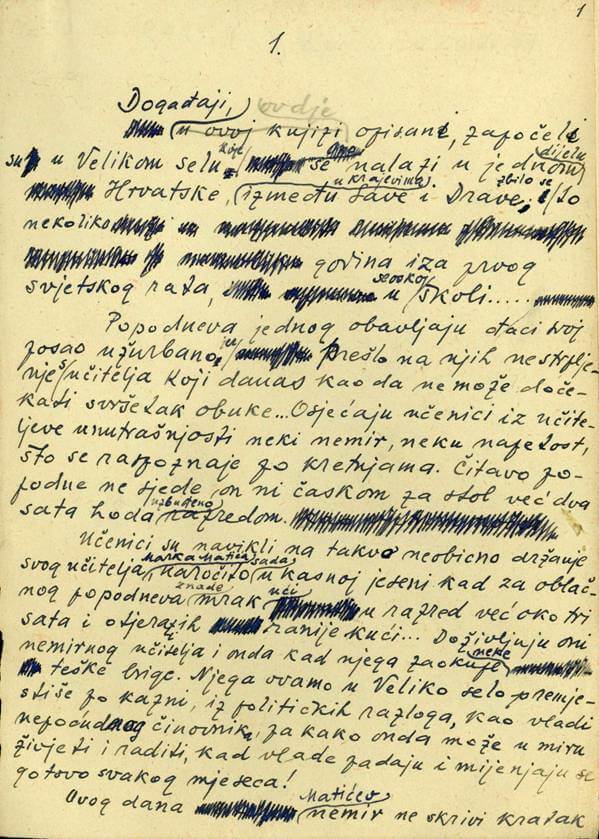 1
1.
Događaji, ovdje
u ovoj knjizi opisani, započeli
su u Velikom selu, koje se nalazi u jednom dijelu
Hrvatske, (između u krajevima Save i Drave, zbilo se to
nekoliko godina iza prvog
svjetskog rata, u seoskoj školi.....
Popodneva jednog obavljaju đaci svoj
posao užurbano, prešlo na njih nestrplje-
nje učitelja koji danas kao da ne može doče-
kati svršetak obuke... Osjećaju učenici iz učite-
ljeve unutrašnjosti neki nemir, neku napetost,
što se raspoznaje po kretnjama. Čitavo po-
podne ne sjede on ni časkom za stol već dva
sata hoda uzbuđeno razredom.
Učenici su navikli na takvo neobično držanje
svog učitelja Marka Matića, naročito sada u kasnoj jeseni kad za oblač-
nog popodneva znade mrak ući u razred već oko tri
sata i otjerati ranije kući... Doživljuju oni
nemirnog učitelja i onda kad njega zaokupe neke
teške brige. Njega ovamo u Veliko selo premje-
stiše po kazni, iz političkih razloga, kao vladi
nepoćudnog činovnika, pa kako onda može u miru
živjeti i raditi, kad vlade padaju i mijenjaju se
gotovo svakog mjeseca!
Ovog dana Matićev nemir ne skrivi kratak